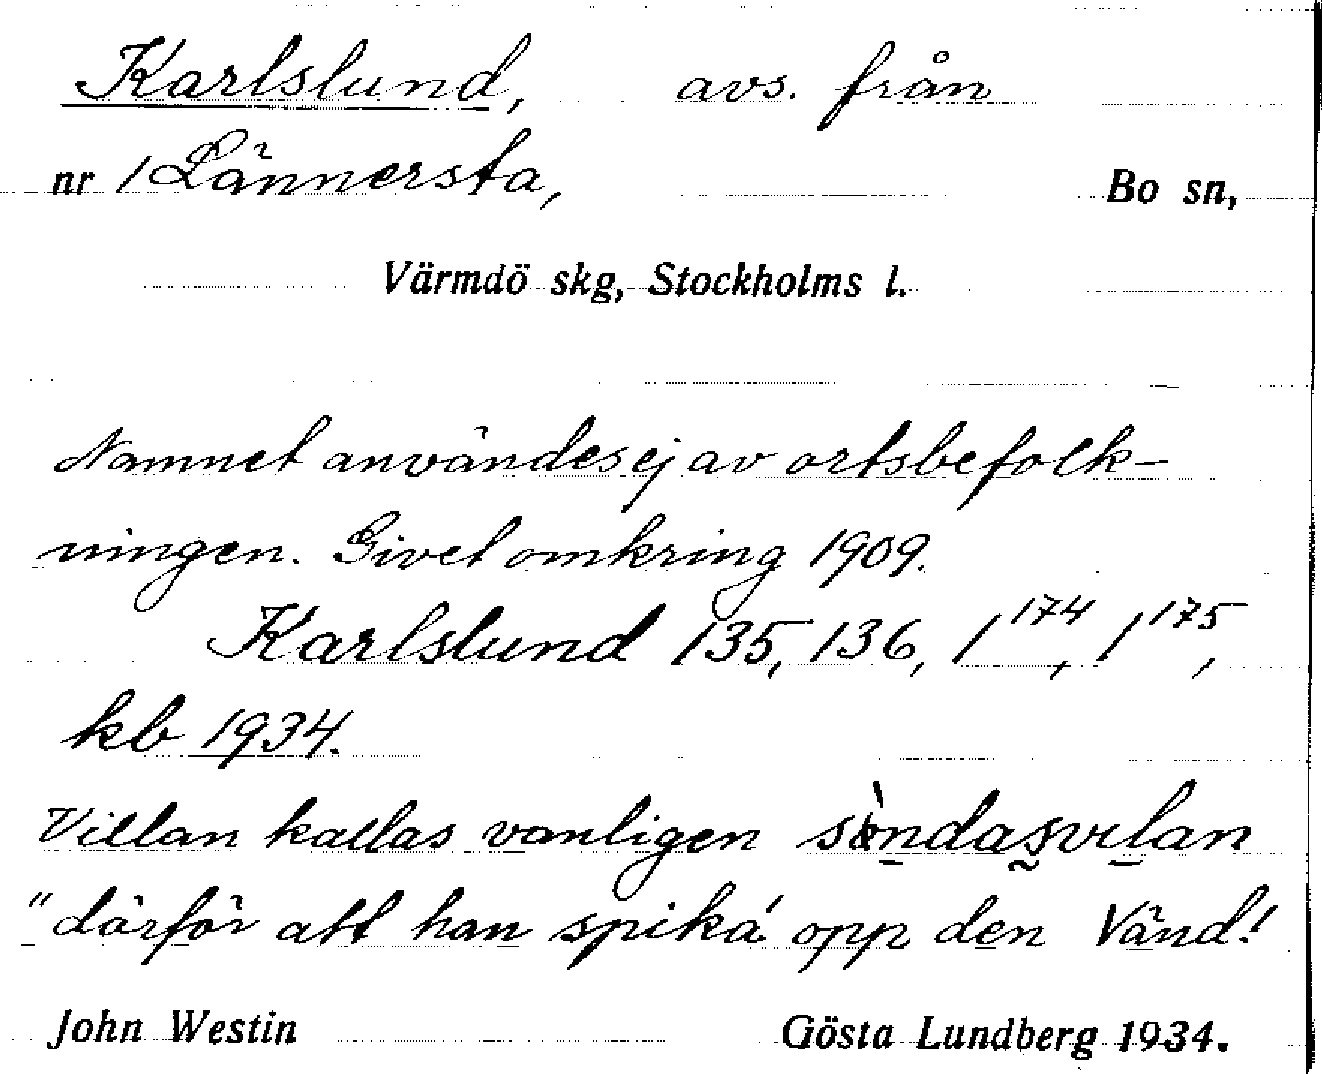 Karlslund, avs. från
nr 1 Lännersta, Bo sn,
Värmdö skg, Stockholms l.
Namnet användes ej av ortsbefolk-
ningen. Givet omkring 1909.
Karlslund 135, 136, 1¹⁷⁴, 1¹⁷⁵,
kb 1934.
Villan kallas vanligen
"därför att han spika' opp den Vänd!
John Westin Gösta Lundberg 1934.